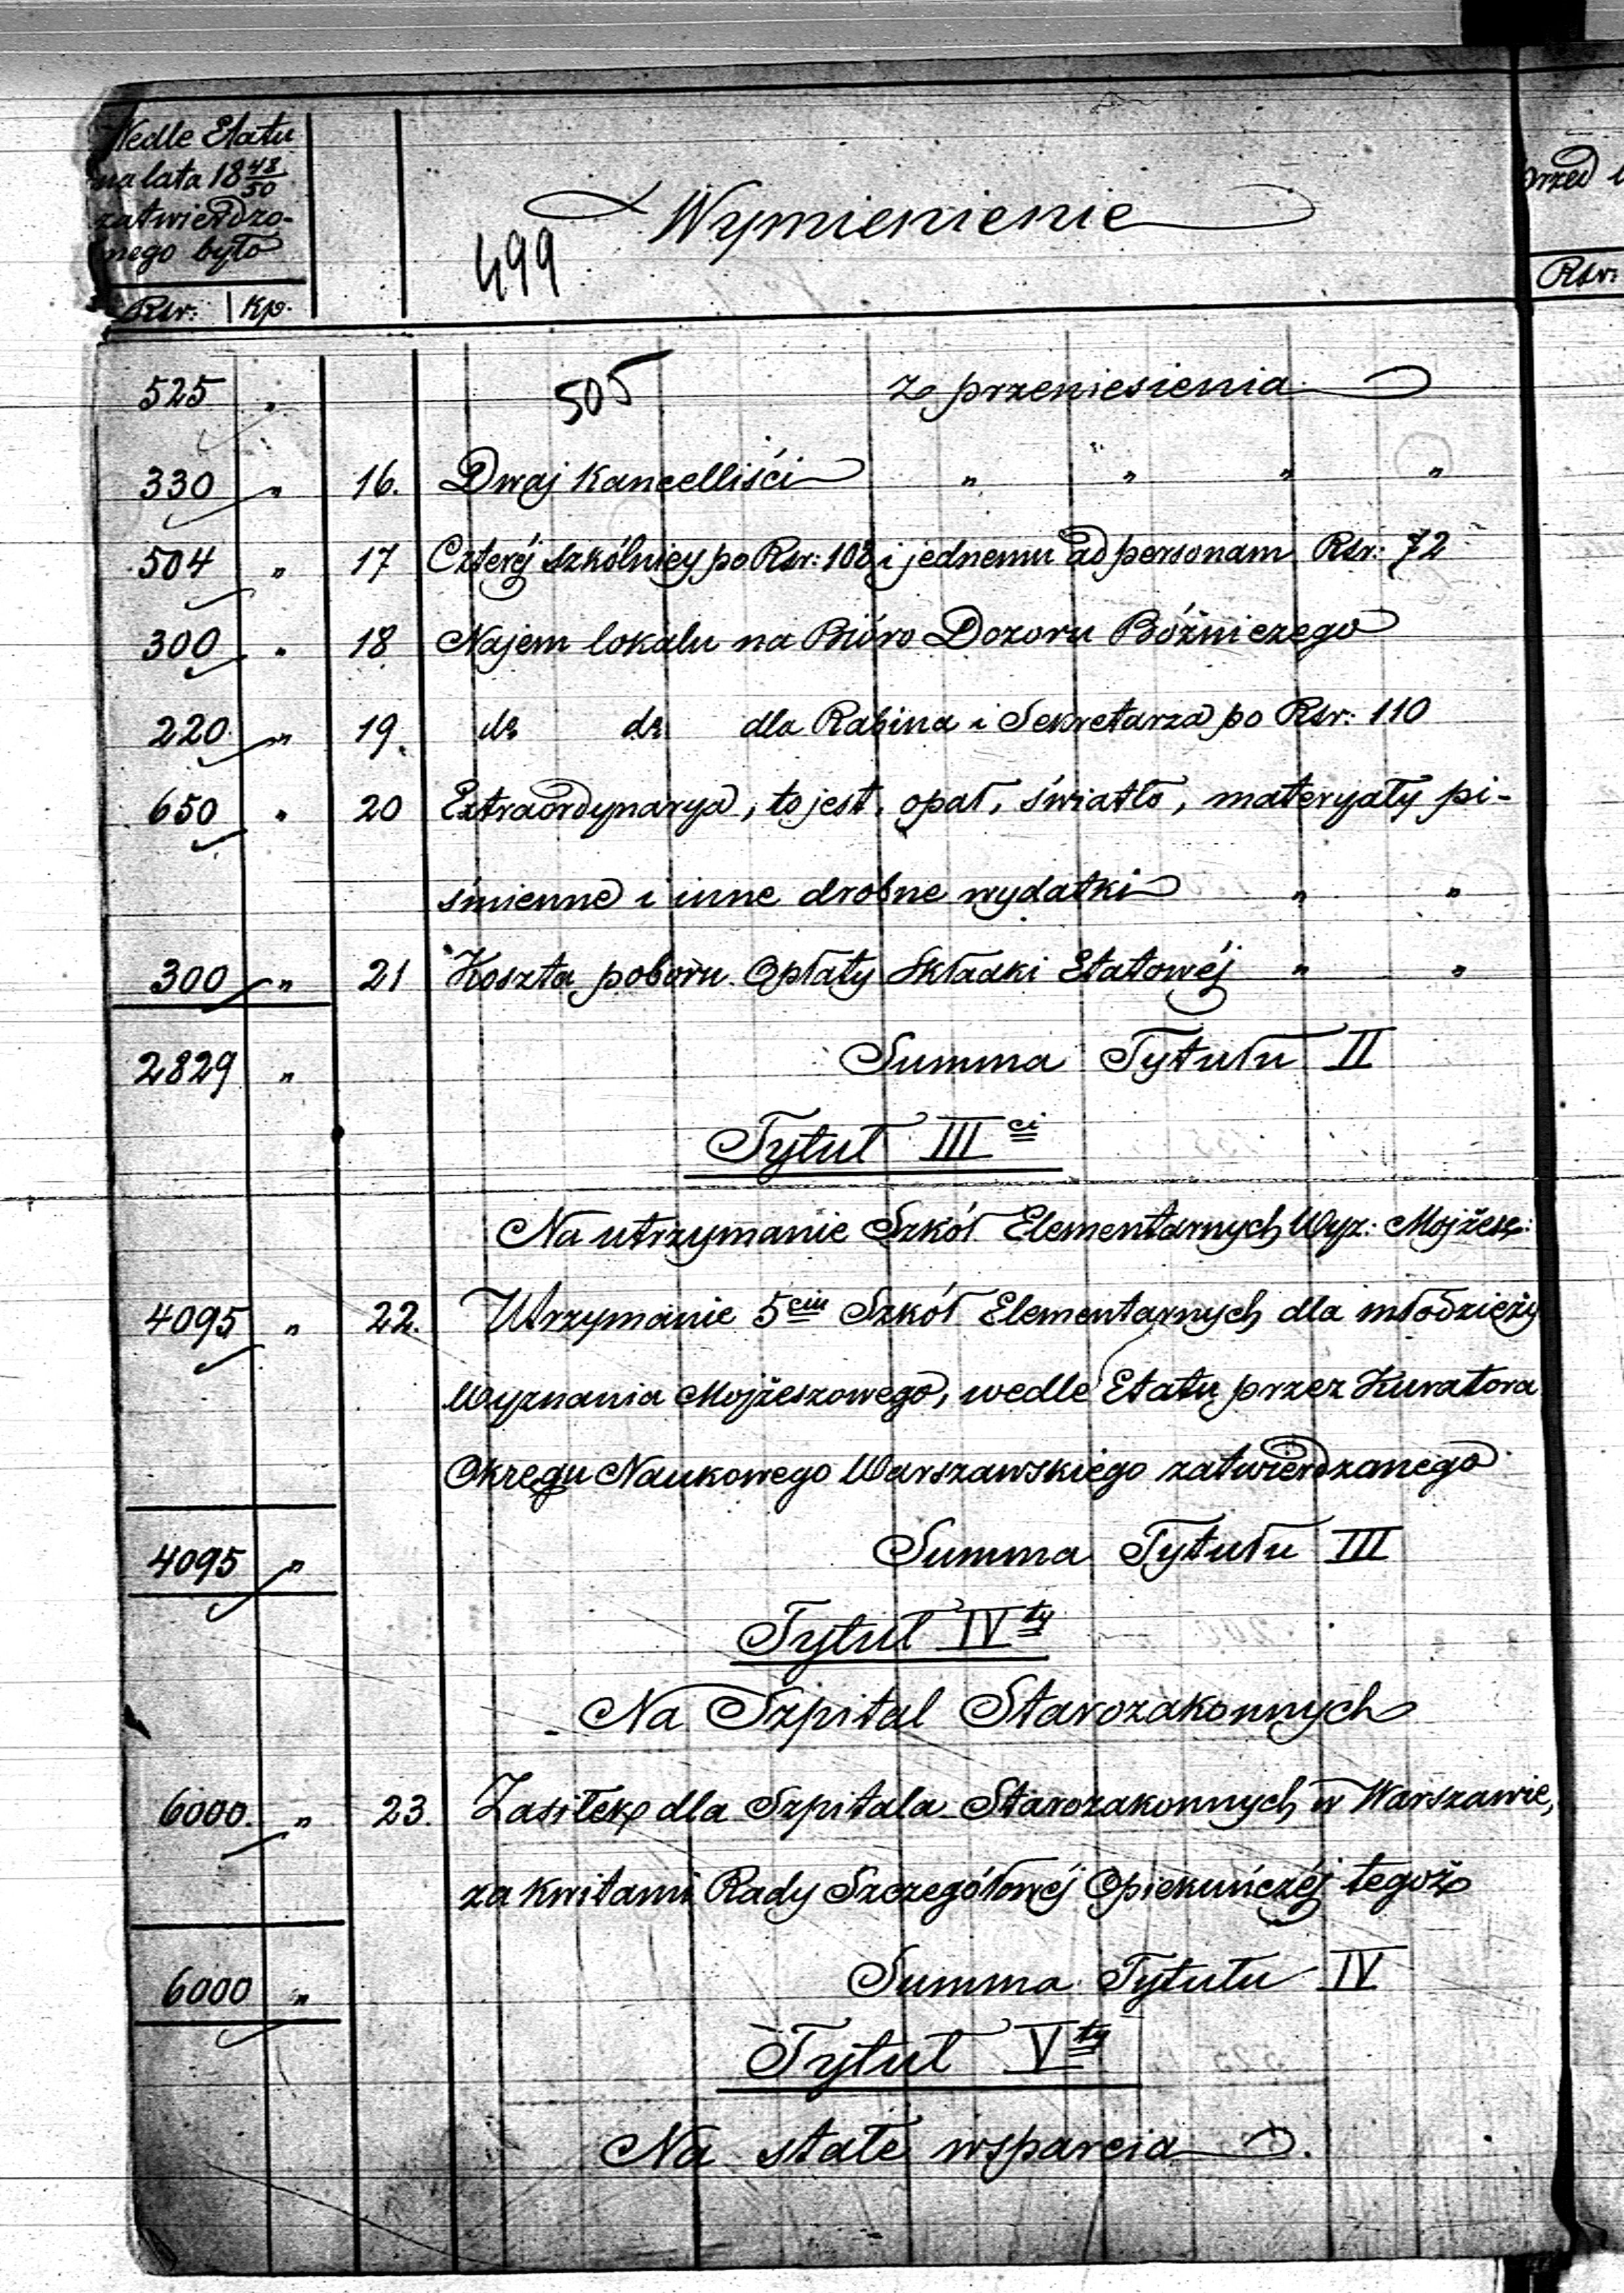 Wedle Etatu
na lata 18 48/50
zatwierdzo-
nego było
Rsr: Kp.
Wymienienie
499
przed
Rsr:
525 " 505 z przeniesienia
330 " 16. Dwaj Kancelliści " " " "
504 " 17 Czteréj szkólnicy po Rsr: 108 i jednemu ad personam Rsr: 72
300 " 18 Najem lokalu na Bióro Dozoru Bóżniczego
220 " 19. do do dla Rabina i Sekretarza po Rsr: 110
650 " 20 Extraordynarya, to jest, opał, światło, materyały pi-
śmienne i inne drobne wydatki " "
300 " 21 Koszta poboru Opłaty Składki Etatowéj " "
2829 " Summa Tytułu II
Tytuł III ci
Na utrzymanie Szkół Elementarnych Wyz: Mojżesz:
4095 " 22. Utrzymanie 5ciu Szkół Elementarnych dla młodzieży
Wyznania Mojżeszowego, wedle Etatu przez Kuratora
Okręgu Naukowego Warszawskiego zatwierdzanego
4095 " Summa Tytułu III
Tytuł IV ty
Na Szpital Starozakonnych
6000. " 23. Zasiłek dla Szpitala Starozakonnych w Warszawie,
za kwitami Rady Szczegółowéj Opiekuńczéj tegoż
6000 " Summa Tytułu IV
Tytuł V ty
Na stałe wsparcia